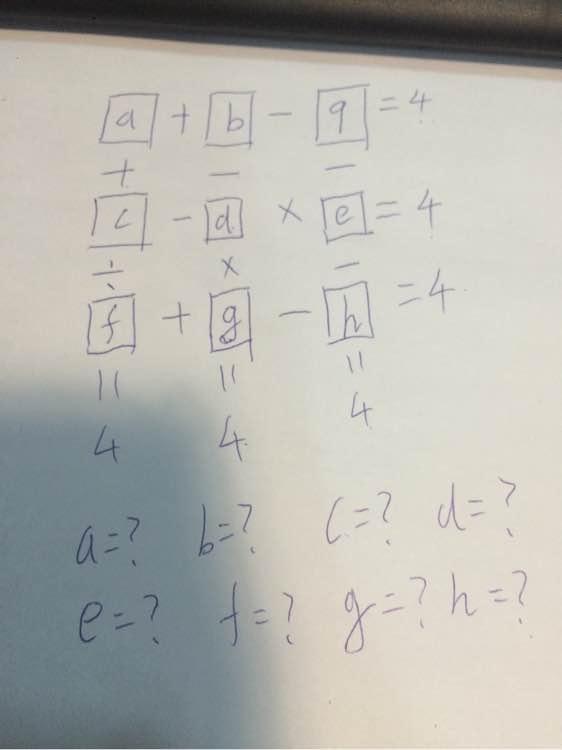 a + b - 9 = 4
+ - -
c - d × e = 4
÷ × -
f + g - h = 4
= = =
4 4 4
a=? b=? c=? d=?
e=? f=? g=? h=?